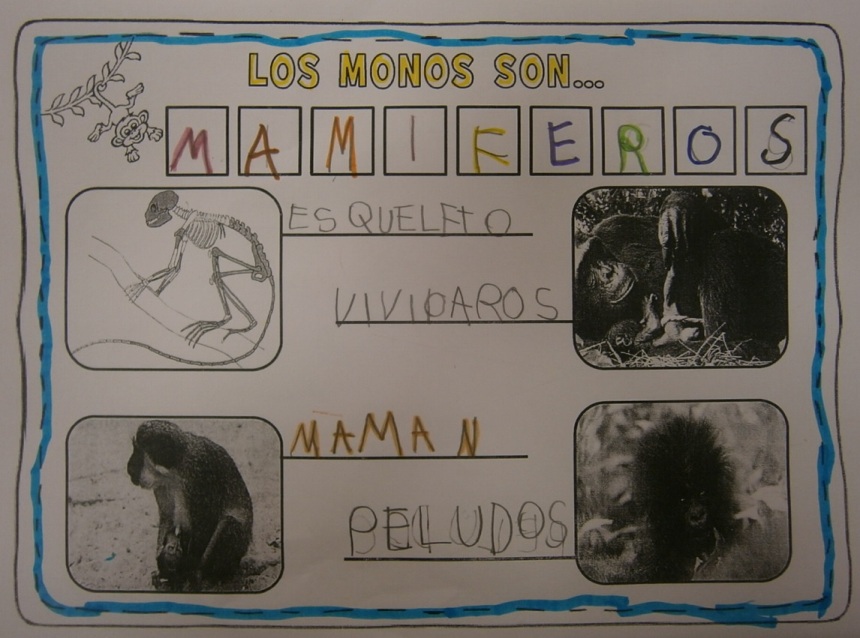 LOS MONOS SON...
MAMIFEROS
ESQUELETO
VIVIPAROS
MAMAN
PELUDOS